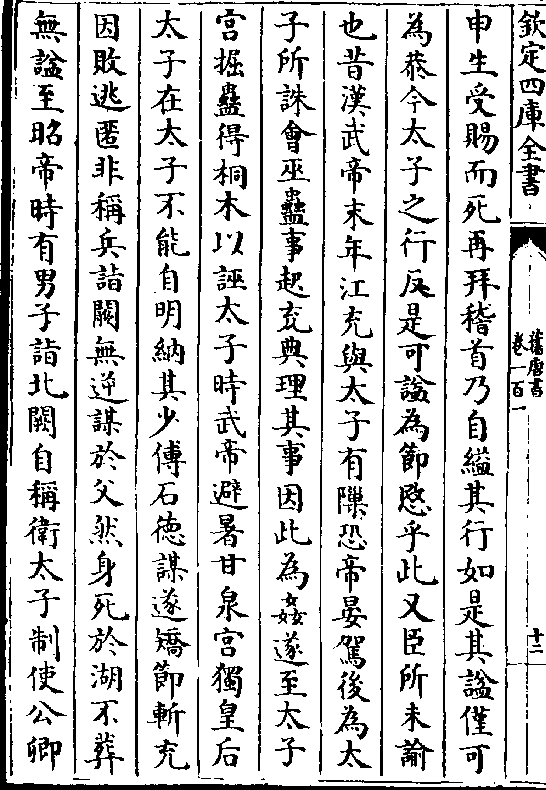 欽定四庫全書
舊唐書
卷一百一
十二
申生受賜而死再拜稽首乃自縊其行如是其諡僅可
為恭今太子之行反是可諡為節愍乎此又臣所未諭
也昔漢武帝末年江充與太子有隟恐帝晏駕後為太
子所誅會巫蠱事起充典理其事因此為姦遂至太子
宮掘蠱得桐木以誣太子時武帝避暑甘泉宮獨皇后
太子在太子不能自明納其少傅石德謀遂矯節斬充
因敗逃匿非稱兵詣闕無逆謀於父然身死於湖不葬
無諡至昭帝時有男子詣北闕自稱衛太子制使公卿